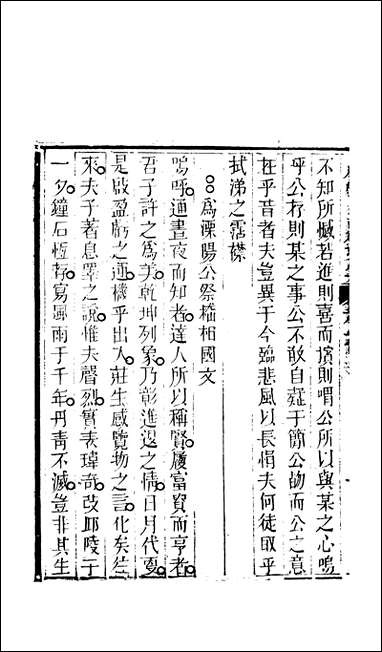 不知所慽若進則喜而擯則唱公所以與某之心嗚
呼公存則某之事公不敢自薤于簡公歿而公之意
在乎昔者夫豈異于今臨悲風以長悁夫何徒取乎
拭涕之霑襟
○○爲溧陽公祭楊相國文
嗚呼通晝夜而知者達人所以稱賢履富貴而亨者
君子許之爲美乾坤列象乃彰進退之情日月代更
是啟盈虧之運機乎出入莊生感覽物之言化矣往
來夫子著息罣之說惟夫聲烈實表瑋奇故邱陵于
一夕鐘石恆存寫風雨于千年丹青不滅豈非其生